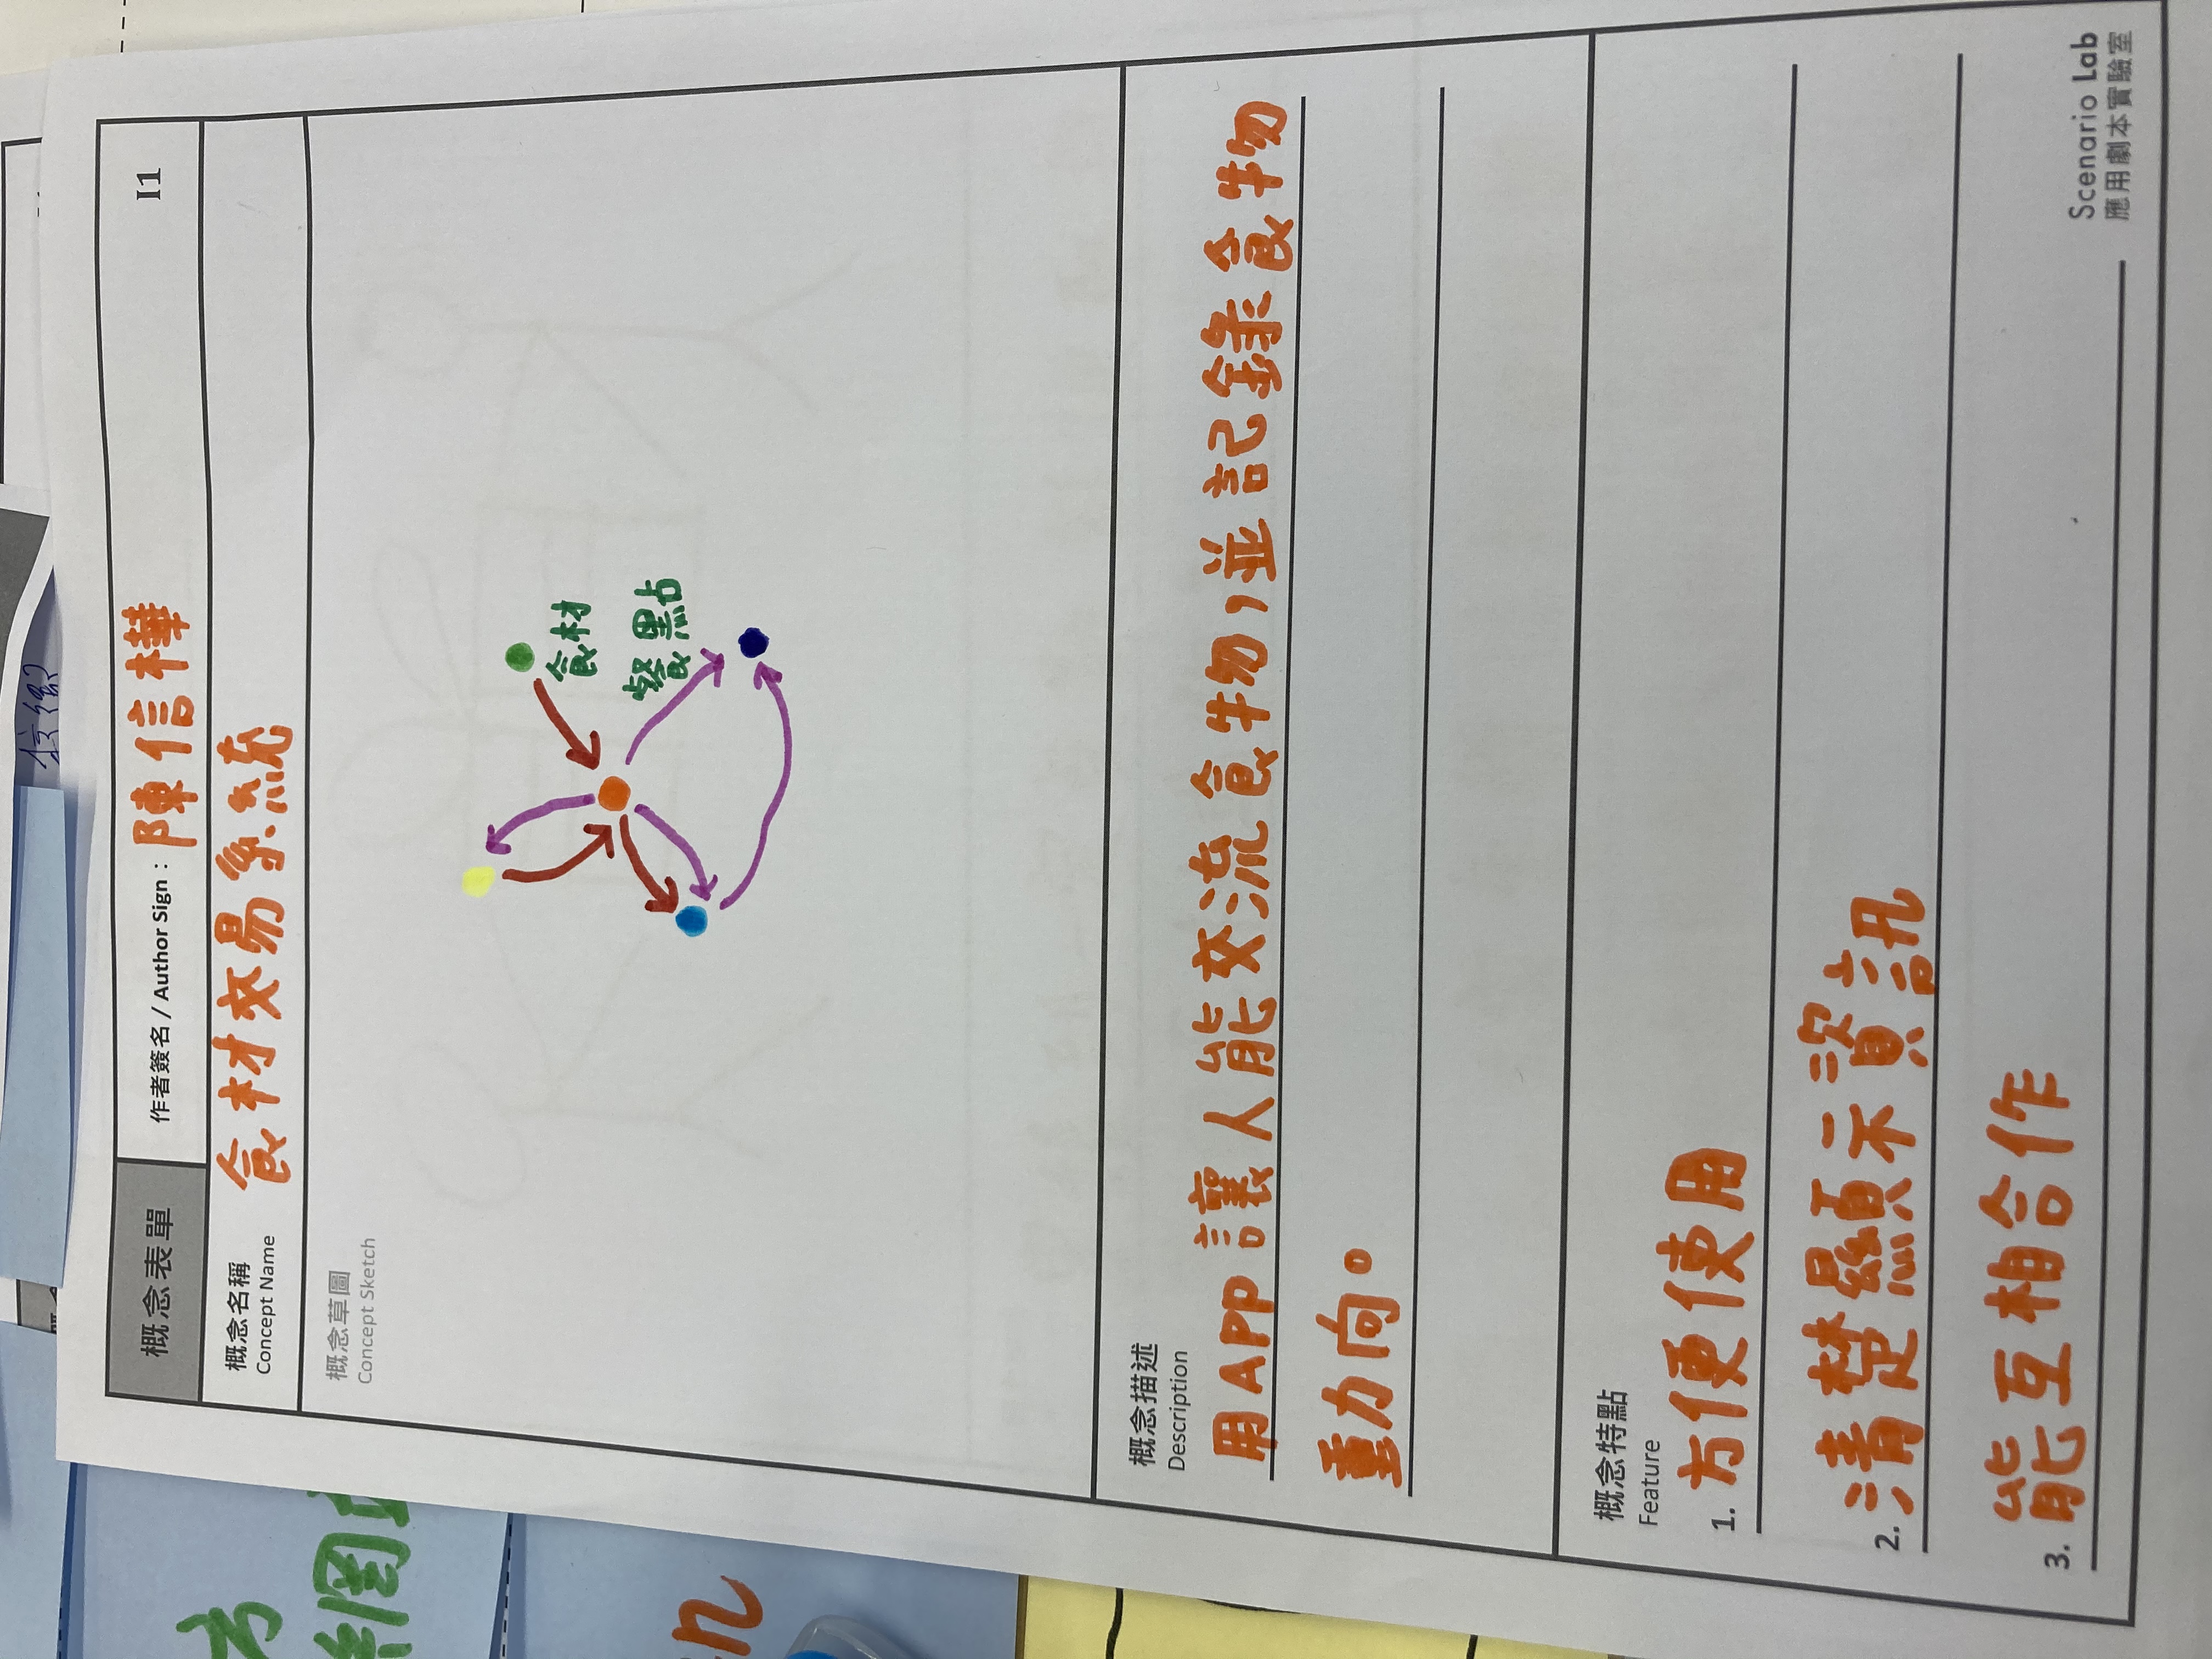 概念表單
作者簽名 / Author Sign：陳信樺
I1
概念名稱
Concept Name
食材交易系統
概念草圖
Concept Sketch
食材
餐點
概念描述
Description
用APP讓人能交流食物，並記錄食物
動向。
概念特點
Feature
1. 方便使用
2. 清楚顯示資訊
3. 能互相合作
Scenario Lab
應用劇本實驗室
方
網